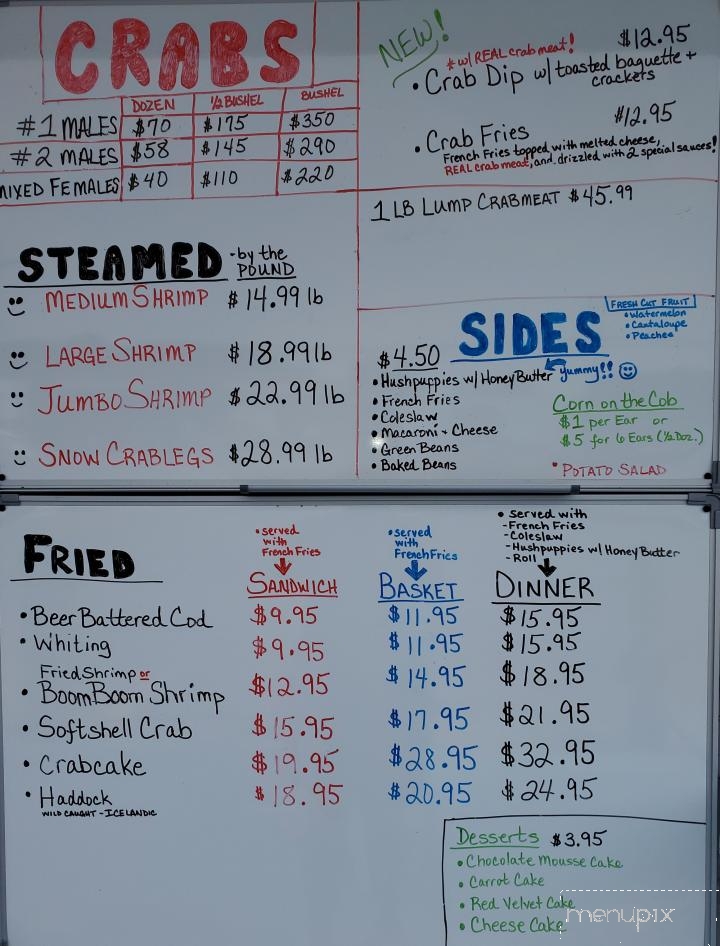 CRABS
DOZEN ½ BUSHEL BUSHEL
#1 MALES $70 $175 $350
#2 MALES $58 $145 $290
MIXED FEMALES $40 $110 $220
NEW!
* w/ REAL crab meat! $12.95
• Crab Dip w/ toasted baguette +
crackets
$12.95
• Crab Fries
French Fries topped with melted cheese,
REAL crab meat, and drizzled with 2 special sauces!
1 LB LUMP CRABMEAT $45.99
STEAMED - by the
POUND
MEDIUM SHRIMP $14.99 lb
LARGE SHRIMP $18.99 lb
JUMBO SHRIMP $22.99 lb
SNOW CRABLEGS $28.99 lb
SIDES
FRESH CUT FRUIT
• Watermelon
• Cantaloupe
• Peaches
$4.50
• Hushpuppies w/ Honey Butter yummy!!
• French Fries
• Coleslaw
• Macaroni + Cheese
• Green Beans
• Baked Beans
Corn on the Cob
$1 per Ear or
$5 for 6 Ears (½ Doz.)
• POTATO SALAD
FRIED
• served
with
French Fries
SANDWICH
• served
with
French Fries
BASKET
• served with
- French Fries
- Coleslaw
- Hushpuppies w/ Honey Butter
- Roll
DINNER
• Beer Battered Cod $9.95 $11.95 $15.95
• Whiting $9.95 $11.95 $15.95
Fried Shrimp or
• Boom Boom Shrimp $12.95 $14.95 $18.95
• Softshell Crab $15.95 $17.95 $21.95
• Crabcake $19.95 $28.95 $32.95
• Haddock $18.95 $20.95 $24.95
WILD CAUGHT - ICELANDIC
Desserts $3.95
• Chocolate Mousse Cake
• Carrot Cake
• Red Velvet Cake
• Cheese Cake
menupix